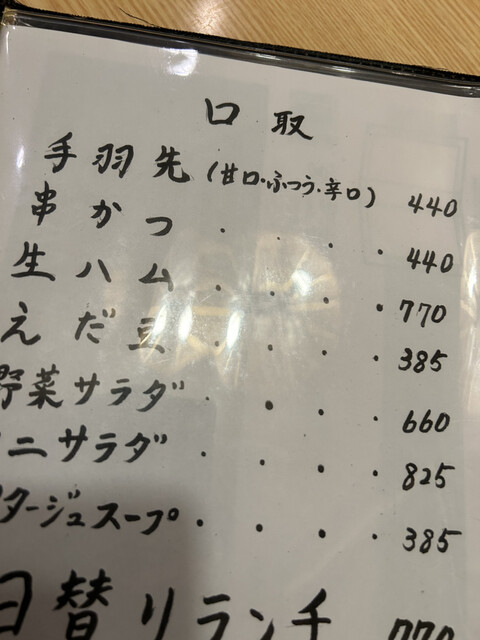 口取
手羽先(甘口・ふつう・辛口) 440
串かつ・・・・ 440
生ハム・・・・ 770
えだ豆・・・・ 385
野菜サラダ・・・・ 660
ニサラダ・・・・ 825
タージュスープ・・・・ 385
日替りランチ 770